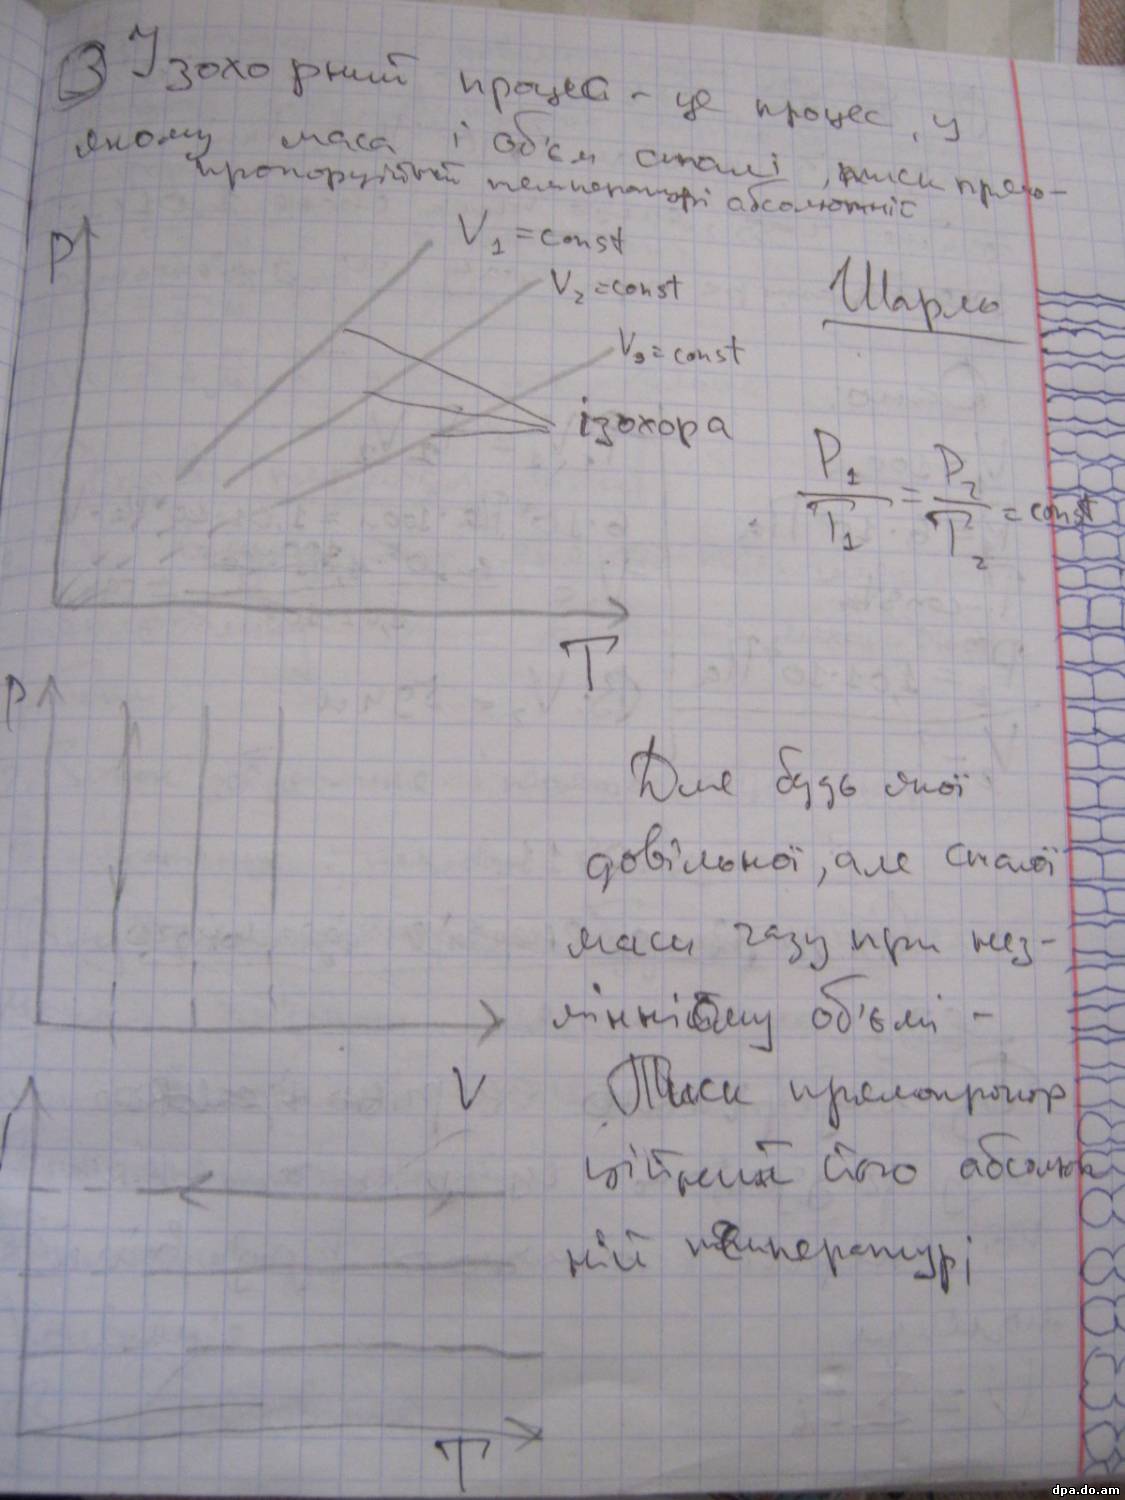 3 Ізохорний процес - це процес, у
якому маса і об'єм сталі, тиск прямо-
пропорційний температурі абсолютній
P
V1 = const
V2 = const
V3 = const
Шарль
ізохора
P1/T1 = P2/T2 = const
T
P
Для будь якої
довільної, але сталої
маси газу при нез-
мінному об'ємі -
V
Тиск прямопропор
ційний його абсолют
ній температурі
T
dpa.do.am